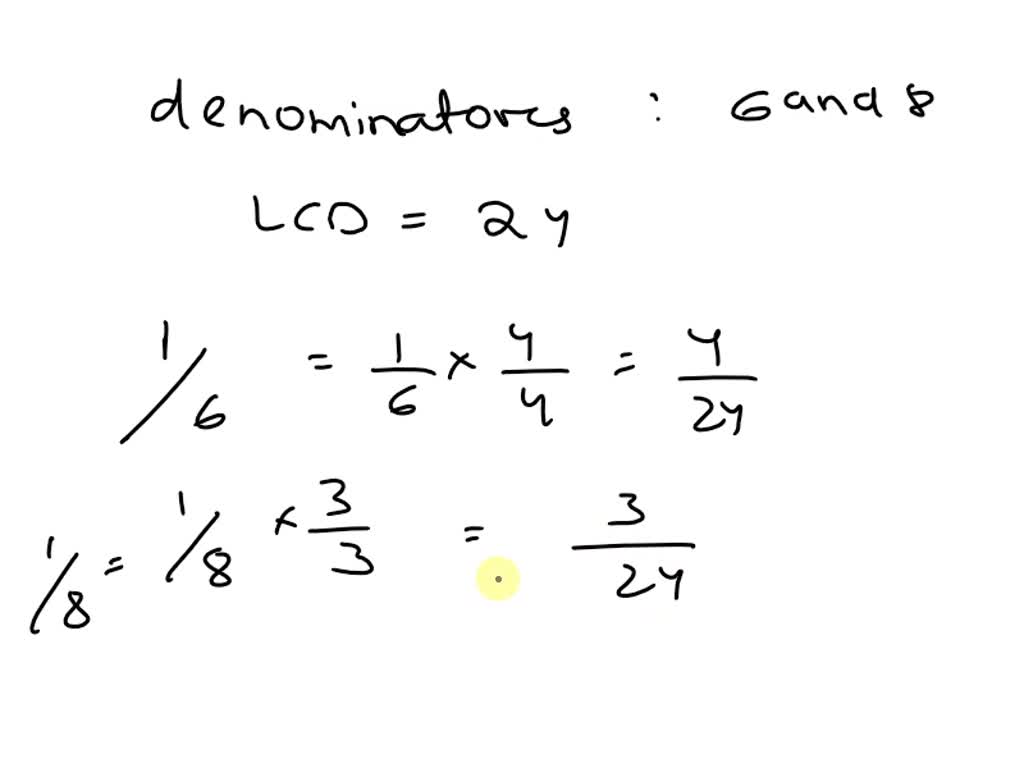 denominators : 6 and 8
LCD = 24
1/6 = 1/6 × 4/4 = 4/24
1/8 = 1/8 × 3/3 = 3/24